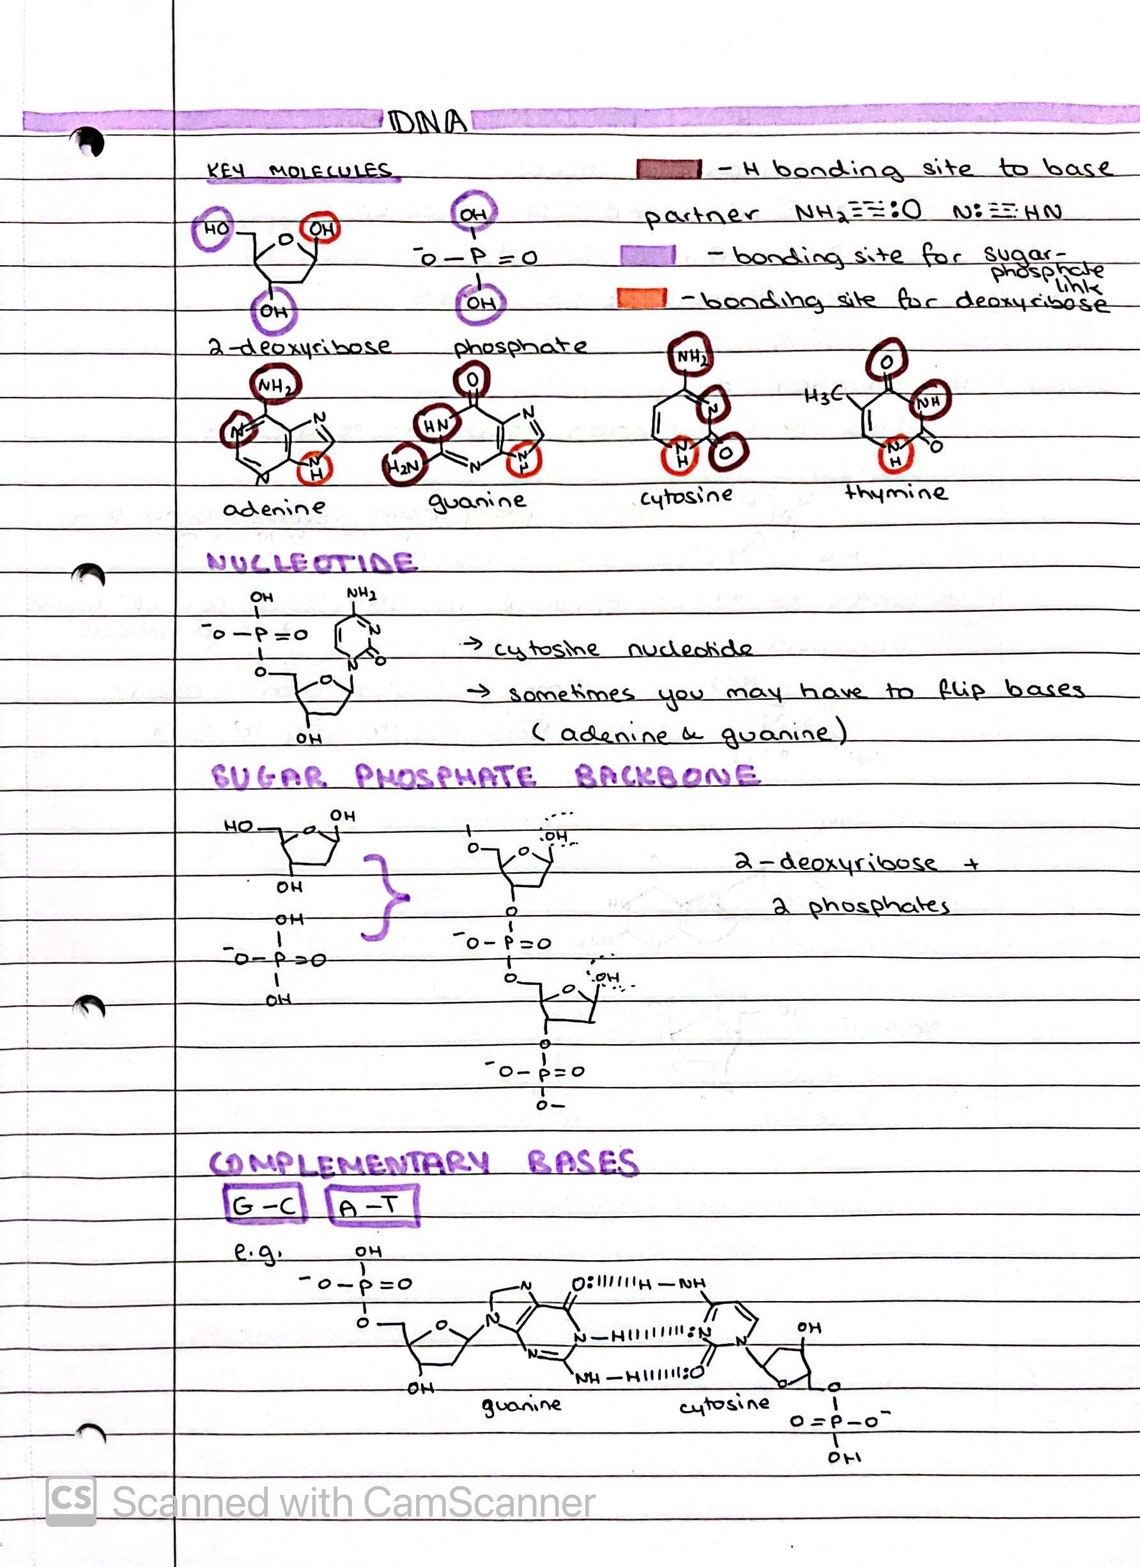 DNA
KEY MOLECULES
- H bonding site to base
partner NH₂≡≡:O N:≡≡HN
- bonding site for sugar-
phosphate
link
- bonding site for deoxyribose
HO O OH
OH
OH
⁻O-P=O
OH
2-deoxyribose phosphate
NH₂
N N
N N
H
adenine
O
HN N
H₂N N N
H
guanine
NH₂
N
N O
H
cytosine
O
H₃C NH
N O
H
thymine
NUCLEOTIDE
OH NH₂
⁻O-P=O N
O N O
O
OH
→ cytosine nucleotide
→ sometimes you may have to flip bases
(adenine & guanine)
SUGAR PHOSPHATE BACKBONE
HO O OH
OH
OH
⁻O-P=O
OH
O O OH
O
⁻O-P=O
O O OH
O
⁻O-P=O
O-
2-deoxyribose +
2 phosphates
COMPLEMENTARY BASES
G-C A-T
e.g. OH
⁻O-P=O
O O
OH
N N O:||||||H-NH
N N-H|||||||:N N
N NH-H||||||:O
guanine cytosine
OH
O O
O=P-O⁻
OH
CS Scanned with CamScanner